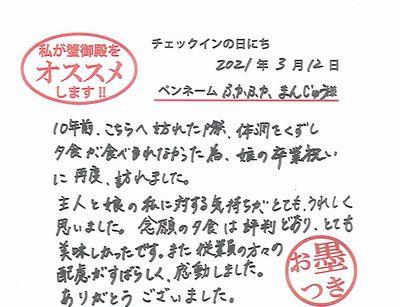 私が蟹御殿を
オススメ
します!!
チェックインの日にち
2021年3月12日
ペンネーム ふかふか、まんじゅう様
10年前、こちらへ訪れた際、体調をくずし
夕食が食べられなかった為、娘の卒業祝い
に再度、訪れました。
主人と娘の私に対する気持ちがとてもうれしく
思いました。念願の夕食は評判どおり、とても
美味しかったです。また従業員の方々の
配慮がすばらしく、感動しました。
ありがとうございました。
お墨
つき